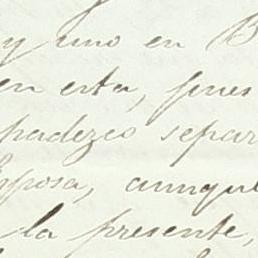 y uno en B
en esta, pues
padezco separ
sposa, aunque
la presente,